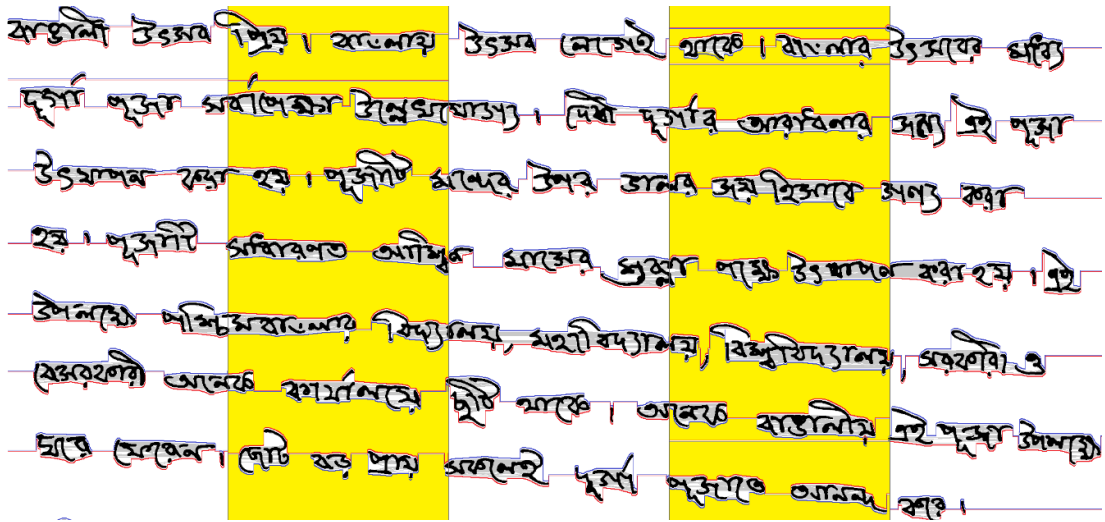 বাঙালী উৎসব প্রিয়। বাংলায় উৎসব লেগেই থাকে। বাংলার উৎসবের মধ্যে
দূর্গা পূজা সর্বাপেক্ষা উল্লেখযোগ্য। দেবী দূর্গার আরাধনার জন্য এই পূজা
উৎযাপন করা হয়। পূজাটি মন্দের উপর ভালর জয় হিসাবে গণ্য করা
হয়। পূজাটি সাধারণত আশ্বিন মাসের শুক্লা পক্ষে উৎযাপন করা হয়। এই
উপলক্ষে পশ্চিমবাংলার বিদ্যালয়, মহাবিদ্যালয়, বিশ্ববিদ্যালয়, সরকারী ও
বেসরকারী অনেক কার্যালয়ে ছুটি থাকে। অনেক বাঙালীয় এই পূজা উপলক্ষে
ঘরে ফেরেন। ছোট বড় প্রায় সকলেই দূর্গা পূজাতে আনন্দ করে।